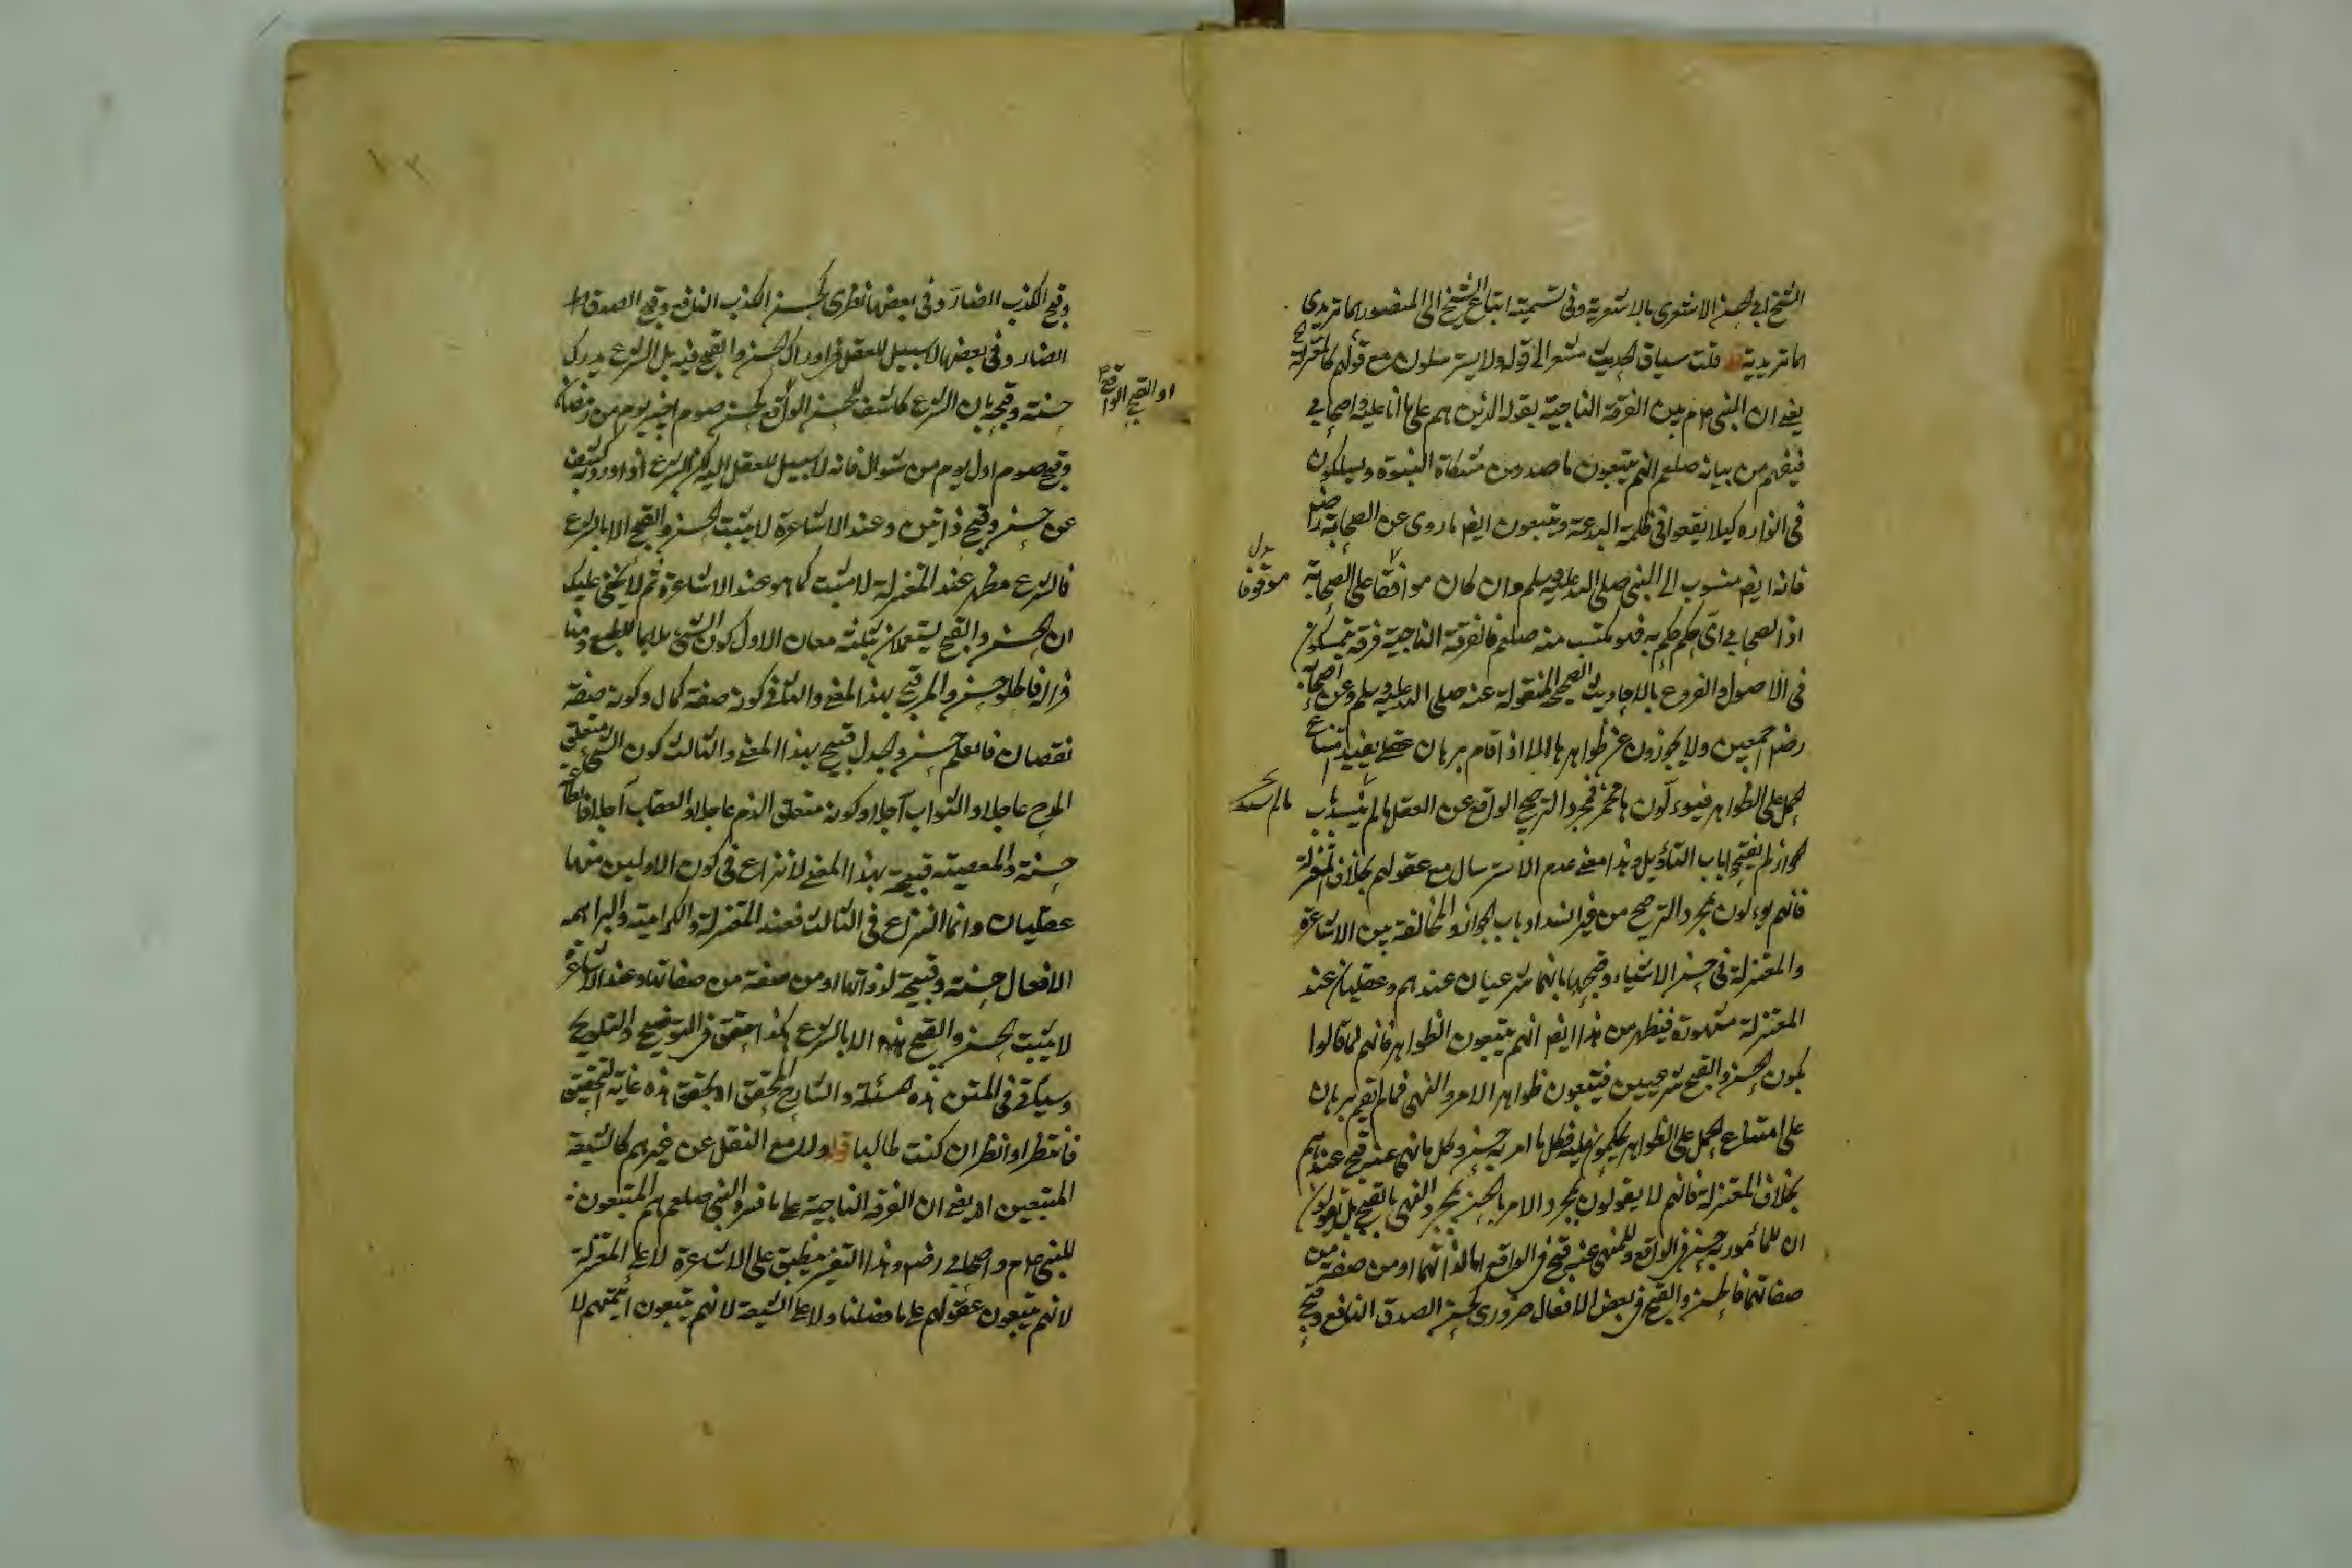 الشيخ ابى الحسن الاشعرى بالاشعرية وفى تسمية اتباع الشيخ ابى المنصور الماتريدى
الماتريدية قلت سياق الحديث مشعر الى قوله ولا يسترسلون مع عقولهم كالمعتزلة
يعنى ان النبى عم بين الفرقة الناجية بقوله الذين هم على ما انا عليه واصحابى
فيفهم من بيانه صلعم انهم يتبعون ما صدر من مشكاة النبوة ويسلكون
فى انواره كيلا يقعوا فى ظلمة البدعة ويتبعون ايضا ما روى عن الصحابة رضى
فانه ايضا منسوب الى النبى صلى الله عليه وسلم وان كان موافقا على الصحابة
بدل موقوفا
اذ الصحابى اى حكم حكم به فهو مكتسب منه صلعم فالفرقة الناجية فرقة يتمسكون
فى الاصول والفروع بالاحاديث الصحيح المنقولة عنه صلى الله عليه وسلم وعن اصحابه
رضى اجمعين ولا يتجاوزون عن ظواهرها الا اذا قام برهان عقلى يفيد امتناع
الحمل على الظواهر فيؤولون بمجرد الترجيح الواقع عن العقل ما لم ينسد باب
ما لم ينسد
الجواز لم يفتحوا باب التأويل وهذا معنى عدم الاسترسال مع عقولهم بخلاف المعتزلة
فانهم يؤولون بمجرد الترجيح من غير انسداد باب الجواز والمخالفة بين الاشاعرة
والمعتزلة فى حسن الاشياء وقبحها بانهما شرعيان عندهم وعقليان عند
المعتزلة مشهورة فيظهر من هذا ايضا انهم يتبعون الظواهر فانهم لما قالوا
بكون الحسن والقبح شرعيين فيتبعون ظواهر الامر والنهى فما لم يقم برهان
على امتناع الحمل على الظواهر يحكمون عليه فكل ما امر به حسن وكل ما نهى عنه قبيح عندهم
بخلاف المعتزلة فانهم لا يقولون بمجرد الامر بالحسن وبمجرد النهى بالقبح بل يقولون
ان للمأمور به حسن فى الواقع وللمنهى عنه قبح فى الواقع اما لذاتهما او من صفة من
صفاتهما فالحسن والقبح فى بعض الافعال ضرورى كحسن الصدق النافع وقبح
وقبح الكذب الضار وفى بعضها نظرى كحسن الكذب النافع وقبح الصدق
الضار وفى بعضها لا سبيل للعقل فى ادراك الحسن والقبح فيه بل الشرع يدرك
حسنه وقبحه بان الشرع كاشف للحسن الواقع كحسن صوم اخير يوم من رمضان
او القبح الواقع
وقبح صوم اول يوم من شوال فانه لا سبيل للعقل اليه لكن الشرع اذا ورد به كشف
عن حسن وقبح ذاتيين وعند الاشاعرة لا يثبت الحسن والقبح الا بالشرع
فالشرع مظهر عند المعتزلة لا مثبت كما هو عند الاشاعرة ثم لا يخفى عليك
ان الحسن والقبح يستعملان بثلثة معان الاول كون الشئ ملايما للطبع ومنا
فرا له فالحلو حسن والمر قبيح بهذا المعنى والثانى كونه صفة كمال وكونه صفة
نقصان فالعلم حسن والجهل قبيح بهذا المعنى والثالث كون الشئ متعلق
المدح عاجلا والثواب آجلا وكونه متعلق الذم عاجلا والعقاب آجلا فالطاعة
حسنة والمعصية قبيحة بهذا المعنى لا نزاع فى كون الاولين منهما
عقليان وانما النزاع فى الثالث فعند المعتزلة والكرامية والبراهمه
الافعال حسنة وقبيحة لذواتها او من صفة من صفاتها وعند الاشاعرة
لا يثبت الحسن والقبح بهذا الا بالشرع هكذا حقق فى التوضيح والتلويح
وسيأتى فى المتن هذه المسئلة والشارح المحقق او يحقق هذه غاية التحقيق
فانتظر او انظر ان كنت طالبا قوله ولا مع النقل عن غيرهم كالشيعة
المتبعين اه يعنى ان الفرقة الناجية على ما فسره النبى صلعم هم المتبعون
للنبى عم واصحابه رضى وهذا التفسير منطبق على الاشاعرة لا على المعتزلة
لانهم يتبعون عقولهم على ما فصلنا ولا على الشيعة لانهم يتبعون ائمتهم لا